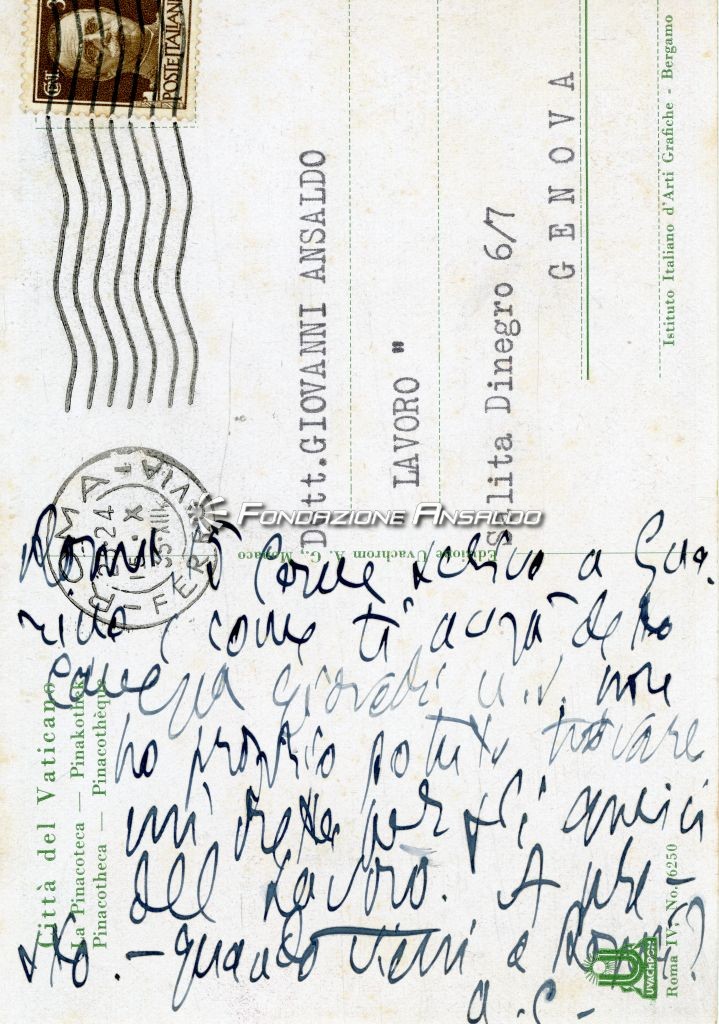 POSTE ITALIANE
ROMA FERROVIA
Dott. GIOVANNI ANSALDO
LAVORO "
Salita Dinegro 6/7
GENOVA
Istituto Italiano d'Arti Grafiche - Bergamo
FONDAZIONE ANSALDO
Edizione Uvachrom A. G., Monaco
Città del Vaticano
La Pinacoteca — Pinakothek
Pinacotheca — Pinacothèque
Roma 5 Come scrivo a Gua-
rino e come ti avrà detto
Canepa giovedì u.s. non
ho proprio potuto trovare
un'oretta per gli amici
del Lavoro. A pre-
sto. - quando vieni a Roma?
a. C-
UVACHROM
Roma IV. No. 6250